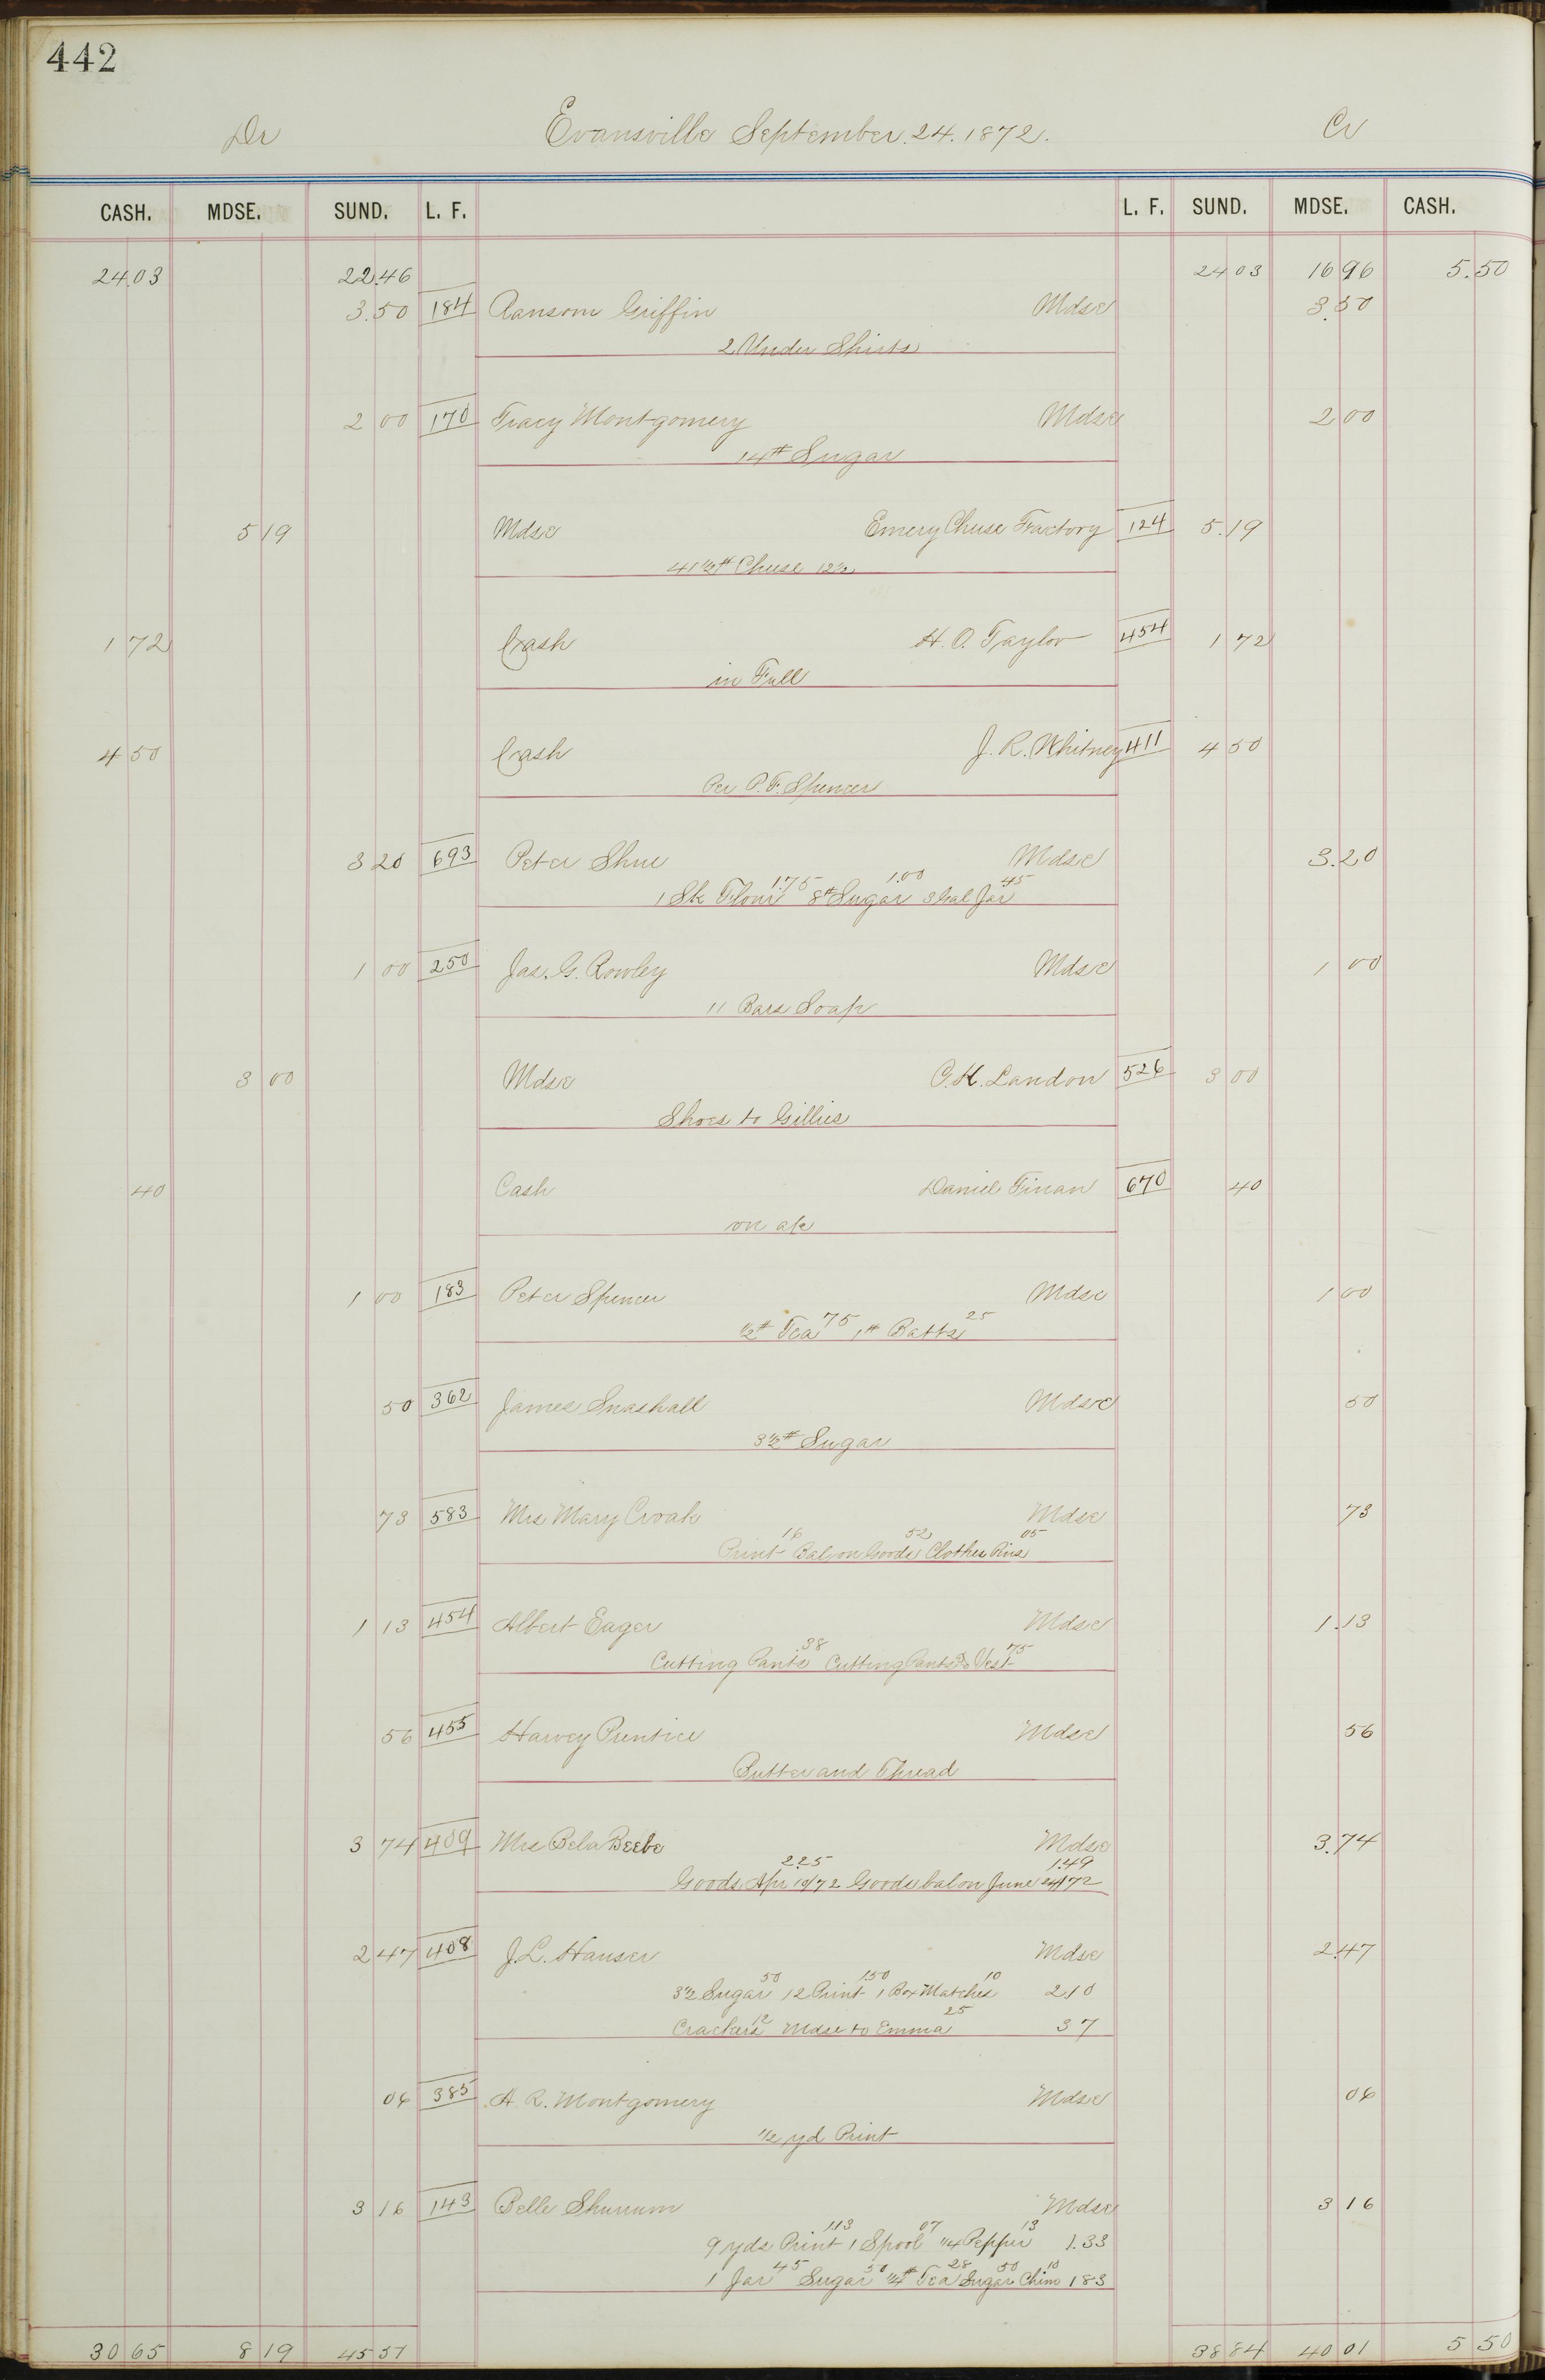 442
Dr Evansville September. 24. 1872. Cr
CASH. MDSE. SUND. L. F. L. F. SUND. MDSE. CASH.
24.03 22.46 24 03 16 96 5.50
3.50 184 Ransom Griffin Mdse 3.50
2 Under Shirts
2 00 170 Tracy Montgomery Mdse 2 00
14# Sugar
5 19 Mdse Emery Chuse Factory 124 5.19
41½# Chuse 12½
1 72 Cash H. O. Taylor 454 1 72
in Full
4 50 Cash J. R. Whitney 411 4 50
Per P. F. Spencer
3 20 693 Peter Shue Mdse 3.20
1 Sk Flour 1.75 8# Sugar 1.00 3 Gal Jar 45
1 00 250 Jas. G. Rowley Mdse 1 00
11 Bars Soap
3 00 Mdse C. H. Landon 526 3 00
Shoes to Gillies
40 Cash Daniel Finan 670 40
on a/c
1 00 183 Peter Spencer Mdse 1 00
½# Tea 75 1# Batts 25
50 362 James Snashall Mdse 50
3½# Sugar
73 583 Mrs Mary Croak Mdse 73
Print 16 Bal on Goods 52 Clothes Pins 05
1 13 454 Albert Eager Mdse 1.13
Cutting Pants 38 Cutting Pants & Vest 75
56 455 Harvey Prentice Mdse 56
Butter and Thread
3 74 409 Mrs Bela Beebe Mdse 3.74
Goods Apr 19/72 2.25 Goods bal on June 24/72 1.49
2 47 408 J. L. Hauser Mdse 2.47
3½ Sugar 50 12 Print 1.50 1 Box Matches 10 2.10
Crackers 12 Mdse to Emma 25 37
06 385 A. R. Montgomery Mdse 06
½ yd Print
3 16 143 Belle Mdse 3 16
9 yds Print 1.13 1 Spool 07 ¼ Pepper 13 1.33
1 Jar 45 Sugar 50 ¼# Tea 28 Sugar 50 Chim 10 1 83
30 65 8 19 45 51 38 84 40 01 5 50